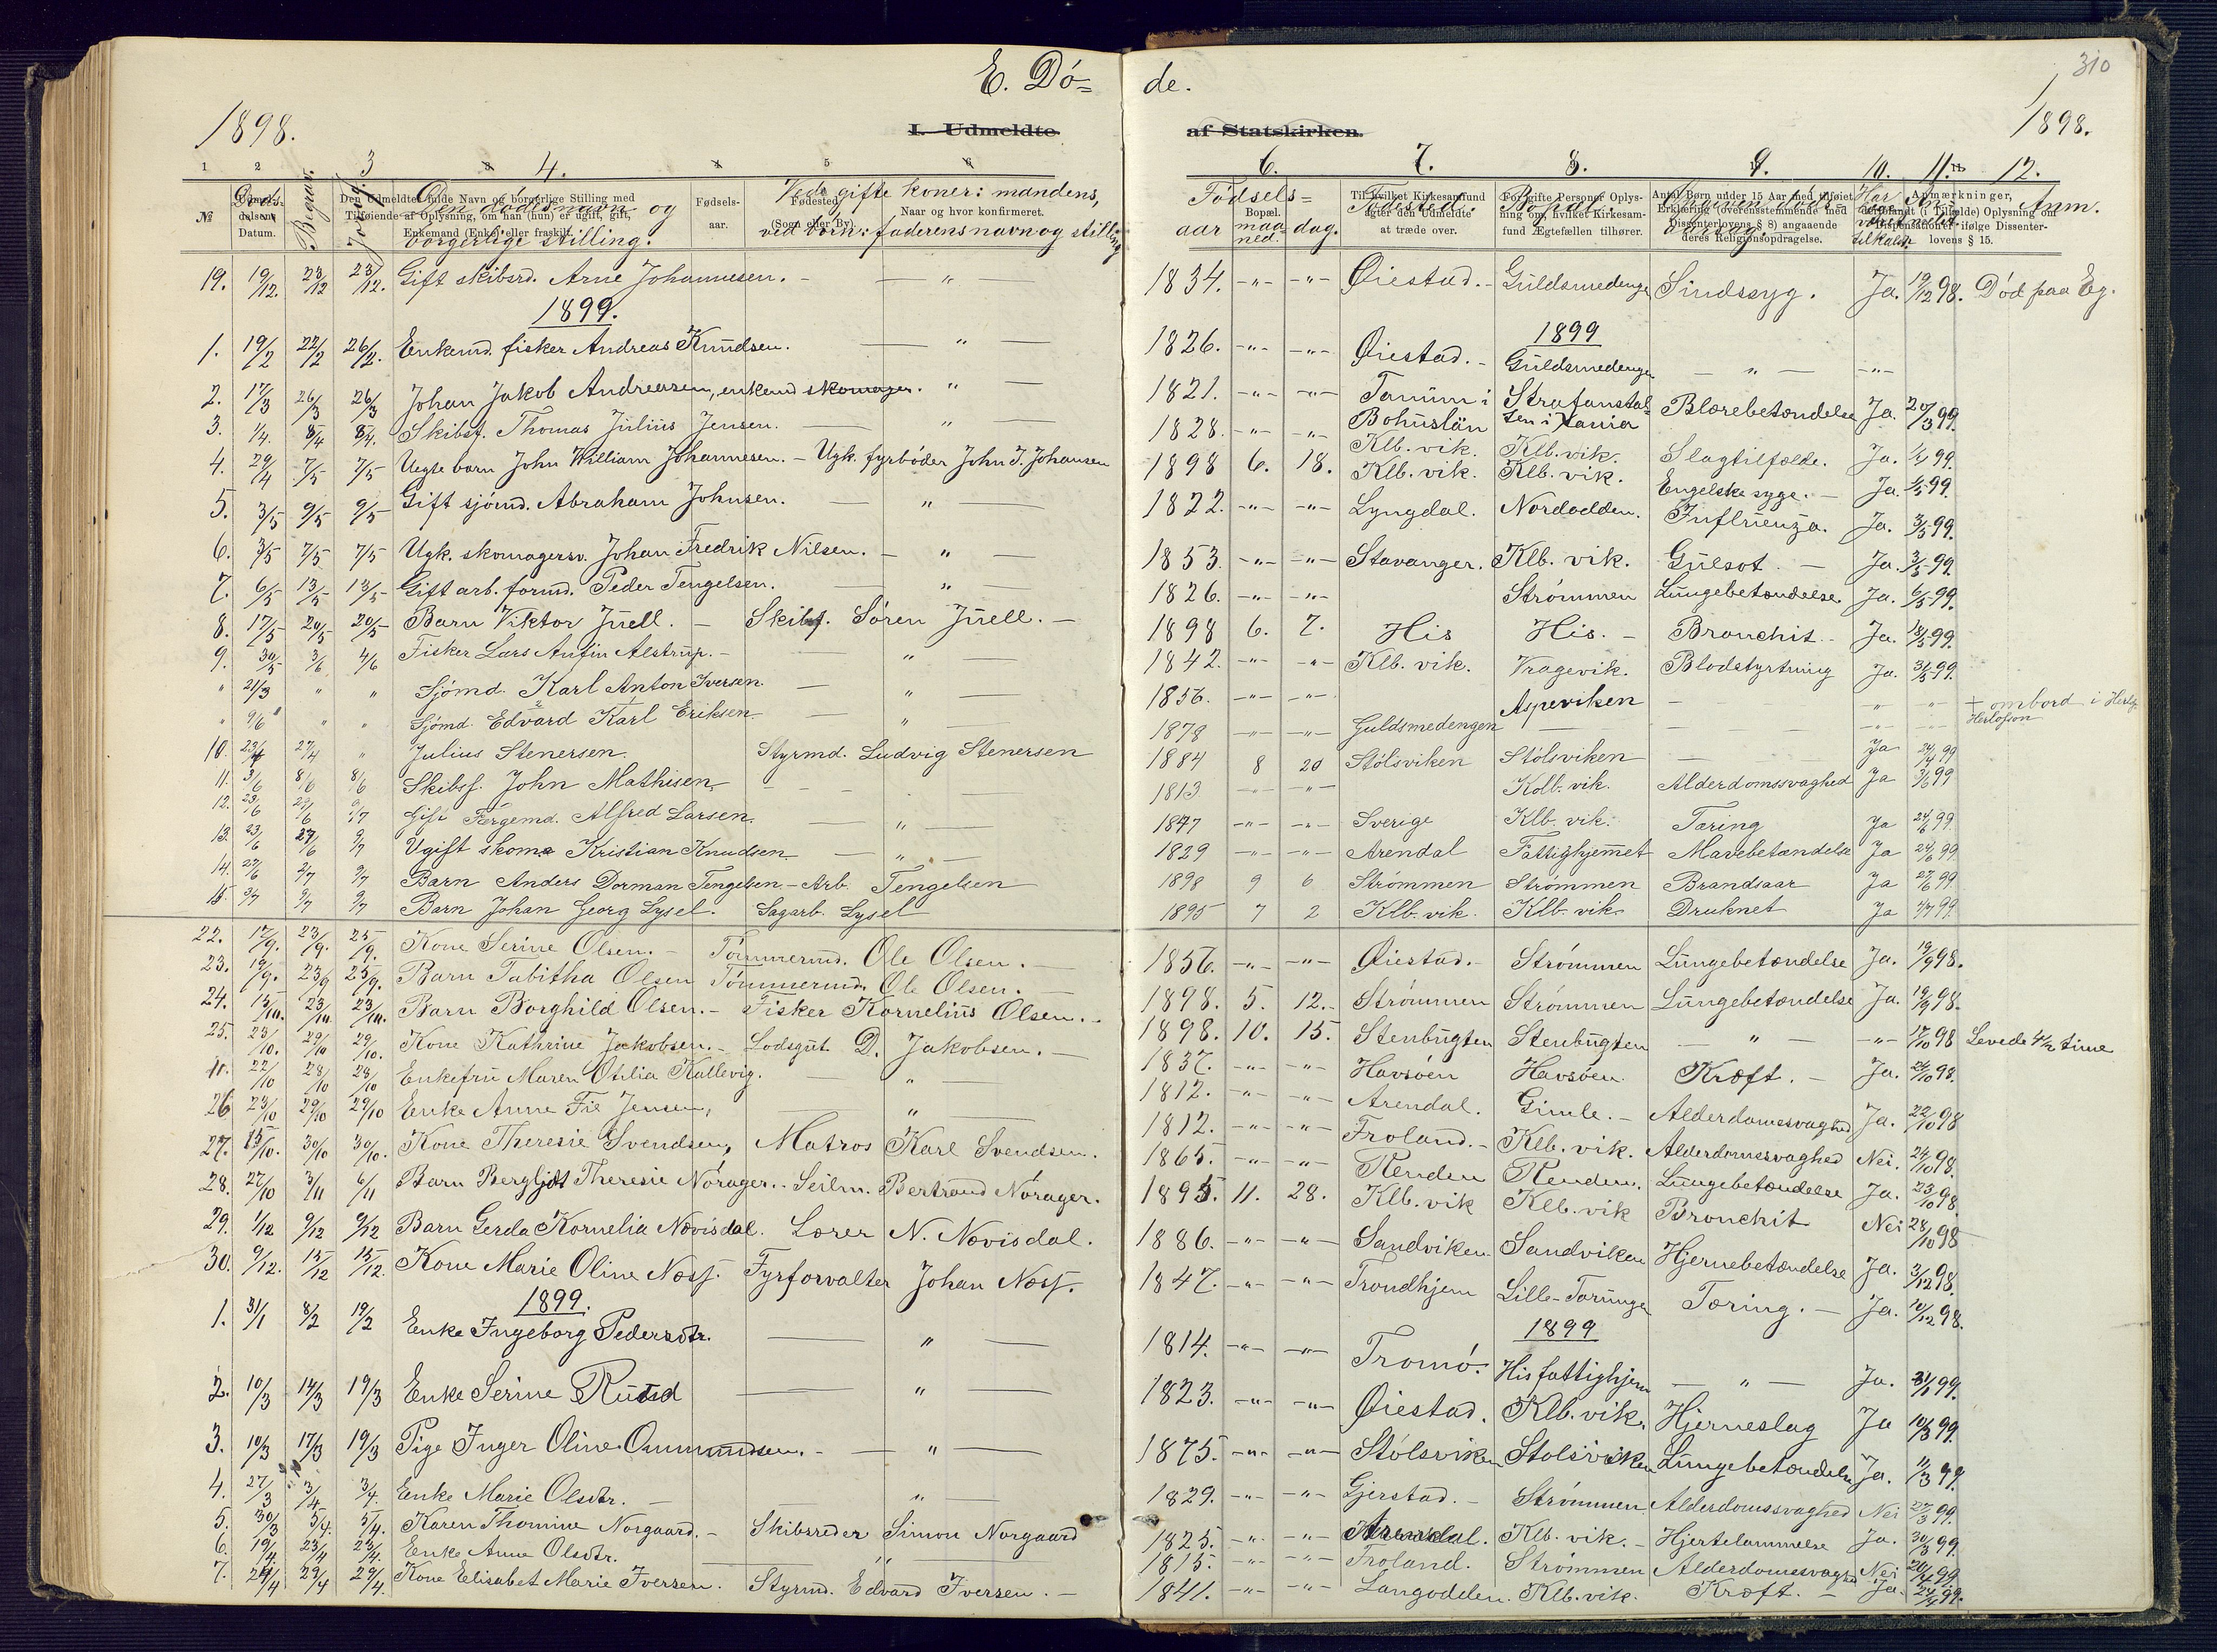 310
E. Dö= de.
1898. I. Udmeldte af Statskirken. 1898.
1 2 3 4. 5 6 6. 7. 8. 9. 10. 11. 12.
№ Døds-datum. Begrav. Jordf. Den dødes navn og borgerlige stilling. Ved gifte koner: mandens, ved børn: faderens navn og stilling Fødsels= aar maaned. dag. Fødested. Bopæl. Anm.
Den Udmeldtes fulde Navn og borgerlige Stilling med Tilføiende af Oplysning, om han (hun) er ugift, gift, Enkemand (Enke) eller fraskilt. Fødsels-aar. Fødested. (Sogn eller By). Naar og hvor konfirmeret. Bopæl. Til hvilket Kirkesamfund agter den Udmeldte at træde over. For gifte Personer Oplysning om, hvilket Kirkesamfund Ægtefællen tilhører. Antal Børn under 15 Aar med tilføiet Erklæring (overensstemmende med Dissenterlovens § 8) angaaende deres Religionsopdragelse. Anmærkninger, deriblandt (i Tilfælde) Oplysning om Dispensationer ifølge Dissenterlovens § 15.
19. 19/12. 23/12 23/12. Gift skibsrd. Arne Johannesen. - — " — 1834. -"- -"- Øiestad. - Guldsmedengen Sindssyg. Ja. 19/12 98. Død paa Eg.
1899. 1899
1. 19/2 22/2 26/2. Enkemd. fisker Andreas Knudsen. — " — 1826. -"- -"- Øiestad. - Guldsmedengen — " — -"-
2. 17/3 26/3 26/3 Johan Jakob Andreasen, enkemd skomager. " — 1821. -"- -"- Tanum i Bohuslän Strafanstalten i Xania Blærebetændelse Ja. 20/3 99.
3. 1/4. 8/4 8/4. Skibsf. Thomas Julius Jensen. — " — 1828. -"- " Klb. vik. Klb. vik. Slagtilfælde. Ja. 1/4 99.
4. 29/4 7/5 7/5 Uegte barn John William Johannesen. - Ugk. fyrbøder John J. Johansen 1898 6. 18. Klb. vik. Klb. vik. Engelske syge. - Ja. 1/5 99.
5. 3/5 9/5 9/5 Gift sjømd. Abraham Johnsen. — " — 1822. -"- -"- Lyngdal. Nordodden. Influenza. Ja. 3/5 99.
6. 3/5 7/5 7/5 Ugk. skomagersv. Johan Fredrik Nilsen. - " — 1853. -"- -"- Stavanger. Klb. vik. Gulsot. - Ja. 3/5 99.
7. 6/5 13/5 13/5 Gift arb. formd. Peder Tengelsen. — " — 1826. -"- -"- Strømmen Lungebetændelse. Ja. 6/5 99.
8. 17/5 20/5 20/5 Barn Viktor Juell. - Skibsf. Søren Juell. - 1898 6. 7. His His. - Bronchit. - Ja. 18/5 99.
9. 30/5 3/6 4/6 Fisker Lars Anfin Alstrup. - — " — 1842. -"- -"- Klb. vik. Vragevik. Blodstyrtning Ja. 31/5 99.
" 21/3 " " Sjømd. Karl Anton Iversen. — " — 1856. -"- -"- Aspeviken — " " + ombord i
" 9/6 " " Sjømd. Edvard Karl Eriksen. — " — 1878 -"- -"- Guldsmedengen — — -"- Herlofson
10. 23/4 27/4 " Julius Stenersen. Styrmd. Ludvig Stenersen 1884 8 20 Stølsviken Stølsviken — Ja 24/4 99
11. 3/6 8/6 8/6 Skibsf. John Mathisen 1813 -"- -"- Kolb. vik. Alderdomssvaghed Ja 3/6 99
12. 23/6 27/6 9/7 Gift Færgemd. Alfred Larsen. — " — 1847 -"- -"- Sverige Klb. vik. Tæring Ja 24/6 99.
13. 23/6 27/6 9/7 Ugift skoma Kristian Knudsen — " — 1829 -"- -"- Arendal Fattighjemmet Mavebetændelse Ja 24/6 99.
14. 27/6 2/7 9/7 Barn Anders Dorman Tengelsen - Arb. Tengelsen 1898 9 6 Strømmen Strømmen Brandsaar Ja 27/6 99.
15. 9/7 9/7 Barn Johan Georg Lysel. Sagarb. Lysel 1895 7 2 Klb. vik. Klb. vik Druknet Ja 7/7 99.
22. 17/9. 23/9. 25/9. Kone Serine Olsen. - Tømmermd. Ole Olsen. 1856. -"- -"- Øiestad. - Strømmen Lungebetændelse Ja. 19/9 98.
23. 19/9. 23/9 25/9. Barn Tabitha Olsen Tømmermd. Ole Olsen. 1898. 5. 12. Strømmen Strømmen Lungebetændelse Ja. 19/9 98.
24. 15/10. 23/10. 23/10. Barn Borghild Olsen. - Fisker Kornelius Olsen. 1898. 10. 15. Stenbugten Stenbugten — " — -"- 17/10 98 Levede 4½ time
25. 23/10. 29/10 29/10. Kone Kathrine Jakobsen. - Lodsgut. D. Jakobsen. - 1837. -"- -"- Havsøen Havsøen. Kræft. - Ja. 24/10 98.
22/10 28/10 28/10 Enkefru Maren Otilia Kallevig. — " — 1812. -"- -"- Arendal. Gimle. - Alderdomssvaghed Ja. 22/10 98
26 23/10 29/10 29/10 Enke Anne Fie Jensen, — " — 1812. -"- -"- Froland. - Klb. vik. Alderdomssvaghed Nei. 24/10 98.
27. 15/10. 30/10 30/10. Kone Theresie Svendsen, Matros Karl Svendsen. 1865. -"- -"- Renden Renden. Lungebetændelse Ja. 23/10 98.
28. 27/10 3/11 6/11 Barn Bergljot Theresie Nørager. - Seilm. Bertrand Nørager. 1895. 11. 28. Klb. vik Klb. vik Bronchit Nei 28/10 98
29. 1/12 9/12 9/12 Barn Gerda Kornelia Nævisdal. Lærer N. Nævisdal. 1886. -"- -"- Sandviken Sandviken Hjernebetændelse Ja. 3/12 98.
30. 9/12. 15/12 15/12. Kone Marie Oline Næss. Fyrforvalter Johan Næss. 1847. -"- -"- Trondhjem Lille-Torungen Tæring. - Ja. 10/12 98.
1899. 1899
1. 31/1 8/2 19/2 Enke Ingeborg Pedersdtr. — " — 1814. -"- -"- Tromø. His fattighjem — " — Ja. 31/1 99.
2. 10/3 14/3 19/3 Enke Serine Ruud — " — 1823. -"- -"- Øiestad. Klb. vik. Hjerneslag Ja 10/3 99.
3. 10/3 17/3 19/3 Pige Inger Oline Ommundsen. - — " — 1875. -"- -"- Stølsviken Stølsviken Lungebetændelse Ja. 11/3 99.
4. 27/3 3/4 3/4. Enke Marie Olsdtr. — " — 1829. -"- -"- Gjerstad. - Strømmen Alderdomssvaghed Nei 27/3 99.
5. 30/3 5/4. 5/4. Karen Thomine Norgaard. - Skibsreder Simon Norgaard 1825. -"- -"- Arendal. Klb. vik. - Hjertelammelse Ja. 30/3 99.
6. 19/4. 23/4 23/4. Enke Anne Olsdtr. — " — 1815. -"- -"- Froland. Strømmen Alderdomssvaghed Nei 20/4 99.
7. 24/4 29/4 29/4. Kone Elisabet Marie Iversen. Styrmd. Edvard Iversen. - 1841. -"- -"- Langodden. Klb. vik. Kræft. - Ja. 24/4 99.